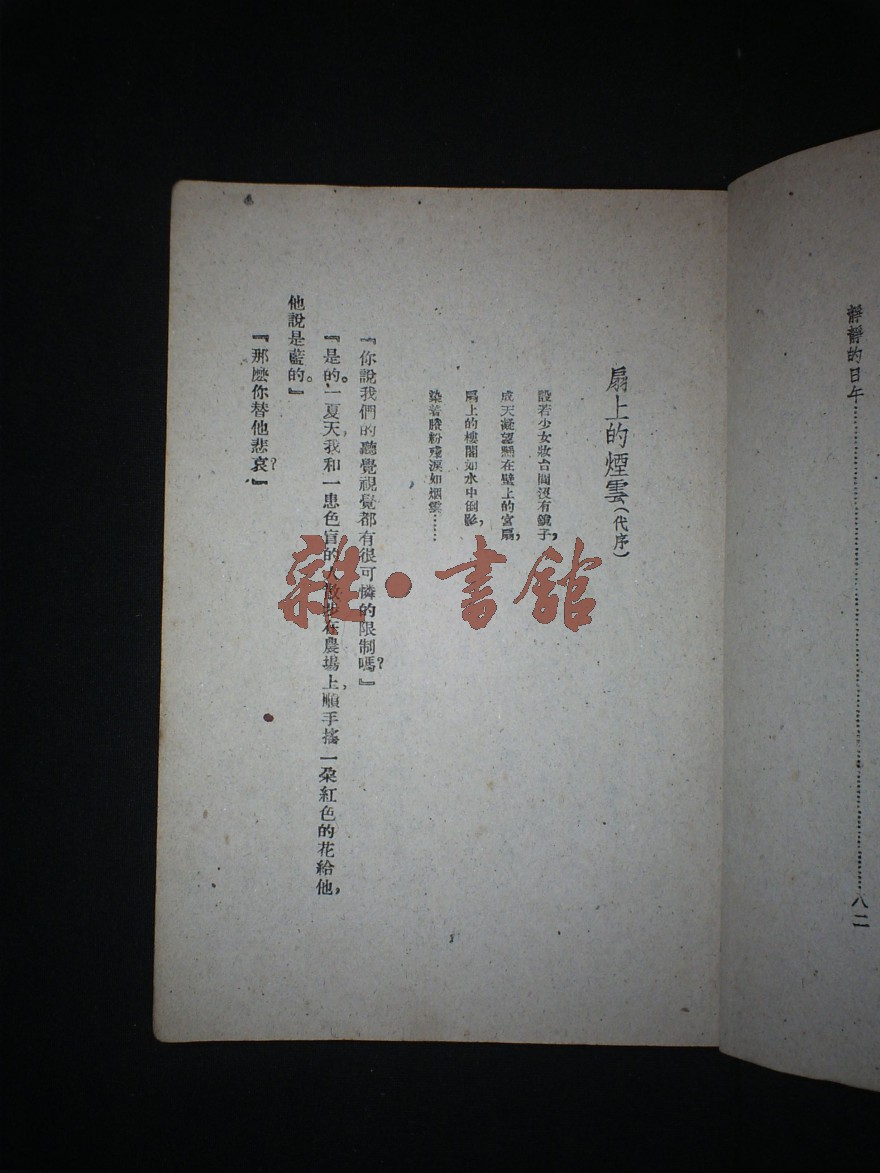 靜靜的日午……………………八二
扇上的煙雲(代序)
設若少女妝台間沒有鏡子，
成天凝望懸在壁上的宮扇，
扇上的樓閣如水中倒影，
染着賸粉殘淚如烟雲……
『你說我們的聽覺視覺都有很可憐的限制嗎？』
『是的。一夏天，我和一患色盲的人散步在農場上，順手摘一朵紅色的花給他，
他說是藍的。』
『那麽你替他悲哀？』
1
雜·書館